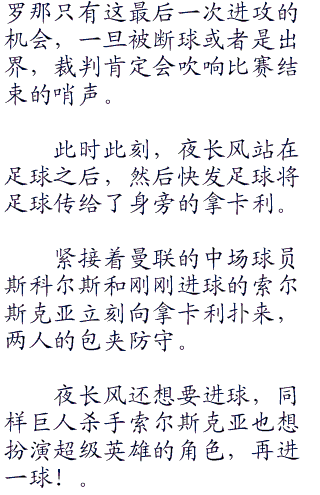 罗那只有这最后一次进攻的
机会，一旦被断球或者是出
界，裁判肯定会吹响比赛结
束的哨声。
此时此刻，夜长风站在
足球之后，然后快发足球将
足球传给了身旁的拿卡利。
紧接着曼联的中场球员
斯科尔斯和刚刚进球的索尔
斯克亚立刻向拿卡利扑来，
两人的包夹防守。
夜长风还想要进球，同
样巨人杀手索尔斯克亚也想
扮演超级英雄的角色，再进
一球！。